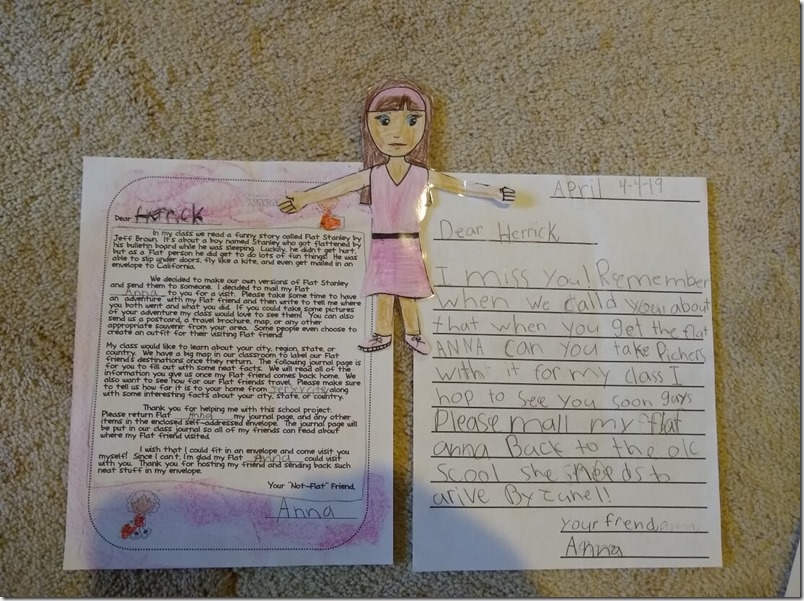 Dear Herrick
In my class we read a funny story called Flat Stanley by
Jeff Brown. It's about a boy named Stanley who got flattened by
his bulletin board while he was sleeping. Luckily, he didn't get hurt,
but as a Flat person he did get to do lots of fun things! He was
able to slip under doors, fly like a kite, and even get mailed in an
envelope to California.
We decided to make our own versions of Flat Stanley
and send them to someone. I decided to mail my Flat
Anna to you for a visit. Please take some time to have
an adventure with my Flat friend and then write to tell me where
you both went and what you did. If you could take some pictures
of your adventure my class would love to see them! You can also
send us a postcard, a travel brochure, map, or any other
appropriate souvenir from your area. Some people even choose to
create an outfit for their visiting Flat friend!
My class would like to learn about your city, region, state, or
country. We have a big map in our classroom to label our Flat
friend's destinations once they return. The following journal page is
for you to fill out with some neat facts. We will read all of the
information you give us once my Flat friend comes back home. We
also want to see how far our Flat friends travel. Please make sure
to tell us how far it is to your home from along
with some interesting facts about your city, state, or country.
Thank you for helping me with this school project.
Please return Flat Anna, my journal page, and any other
items in the enclosed self-addressed envelope. The journal page will
be put in our class journal so all of my friends can read about
where my Flat friend visited.
I wish that I could fit in an envelope and come visit you
myself! Since I can't, I'm glad my Flat Anna could visit
with you. Thank you for hosting my friend and sending back such
neat stuff in my envelope.
Your "Not-Flat" Friend,
Anna
April 4-4-19
Dear Herrick
I miss you! Remember
when we calld you about
that when you get the flat
ANNA can you take Pichers
with it for my class I
hop to see you soon guys
Please mall my flat
anna Back to the olc
scool she needs to
arive By
your frend,
Anna